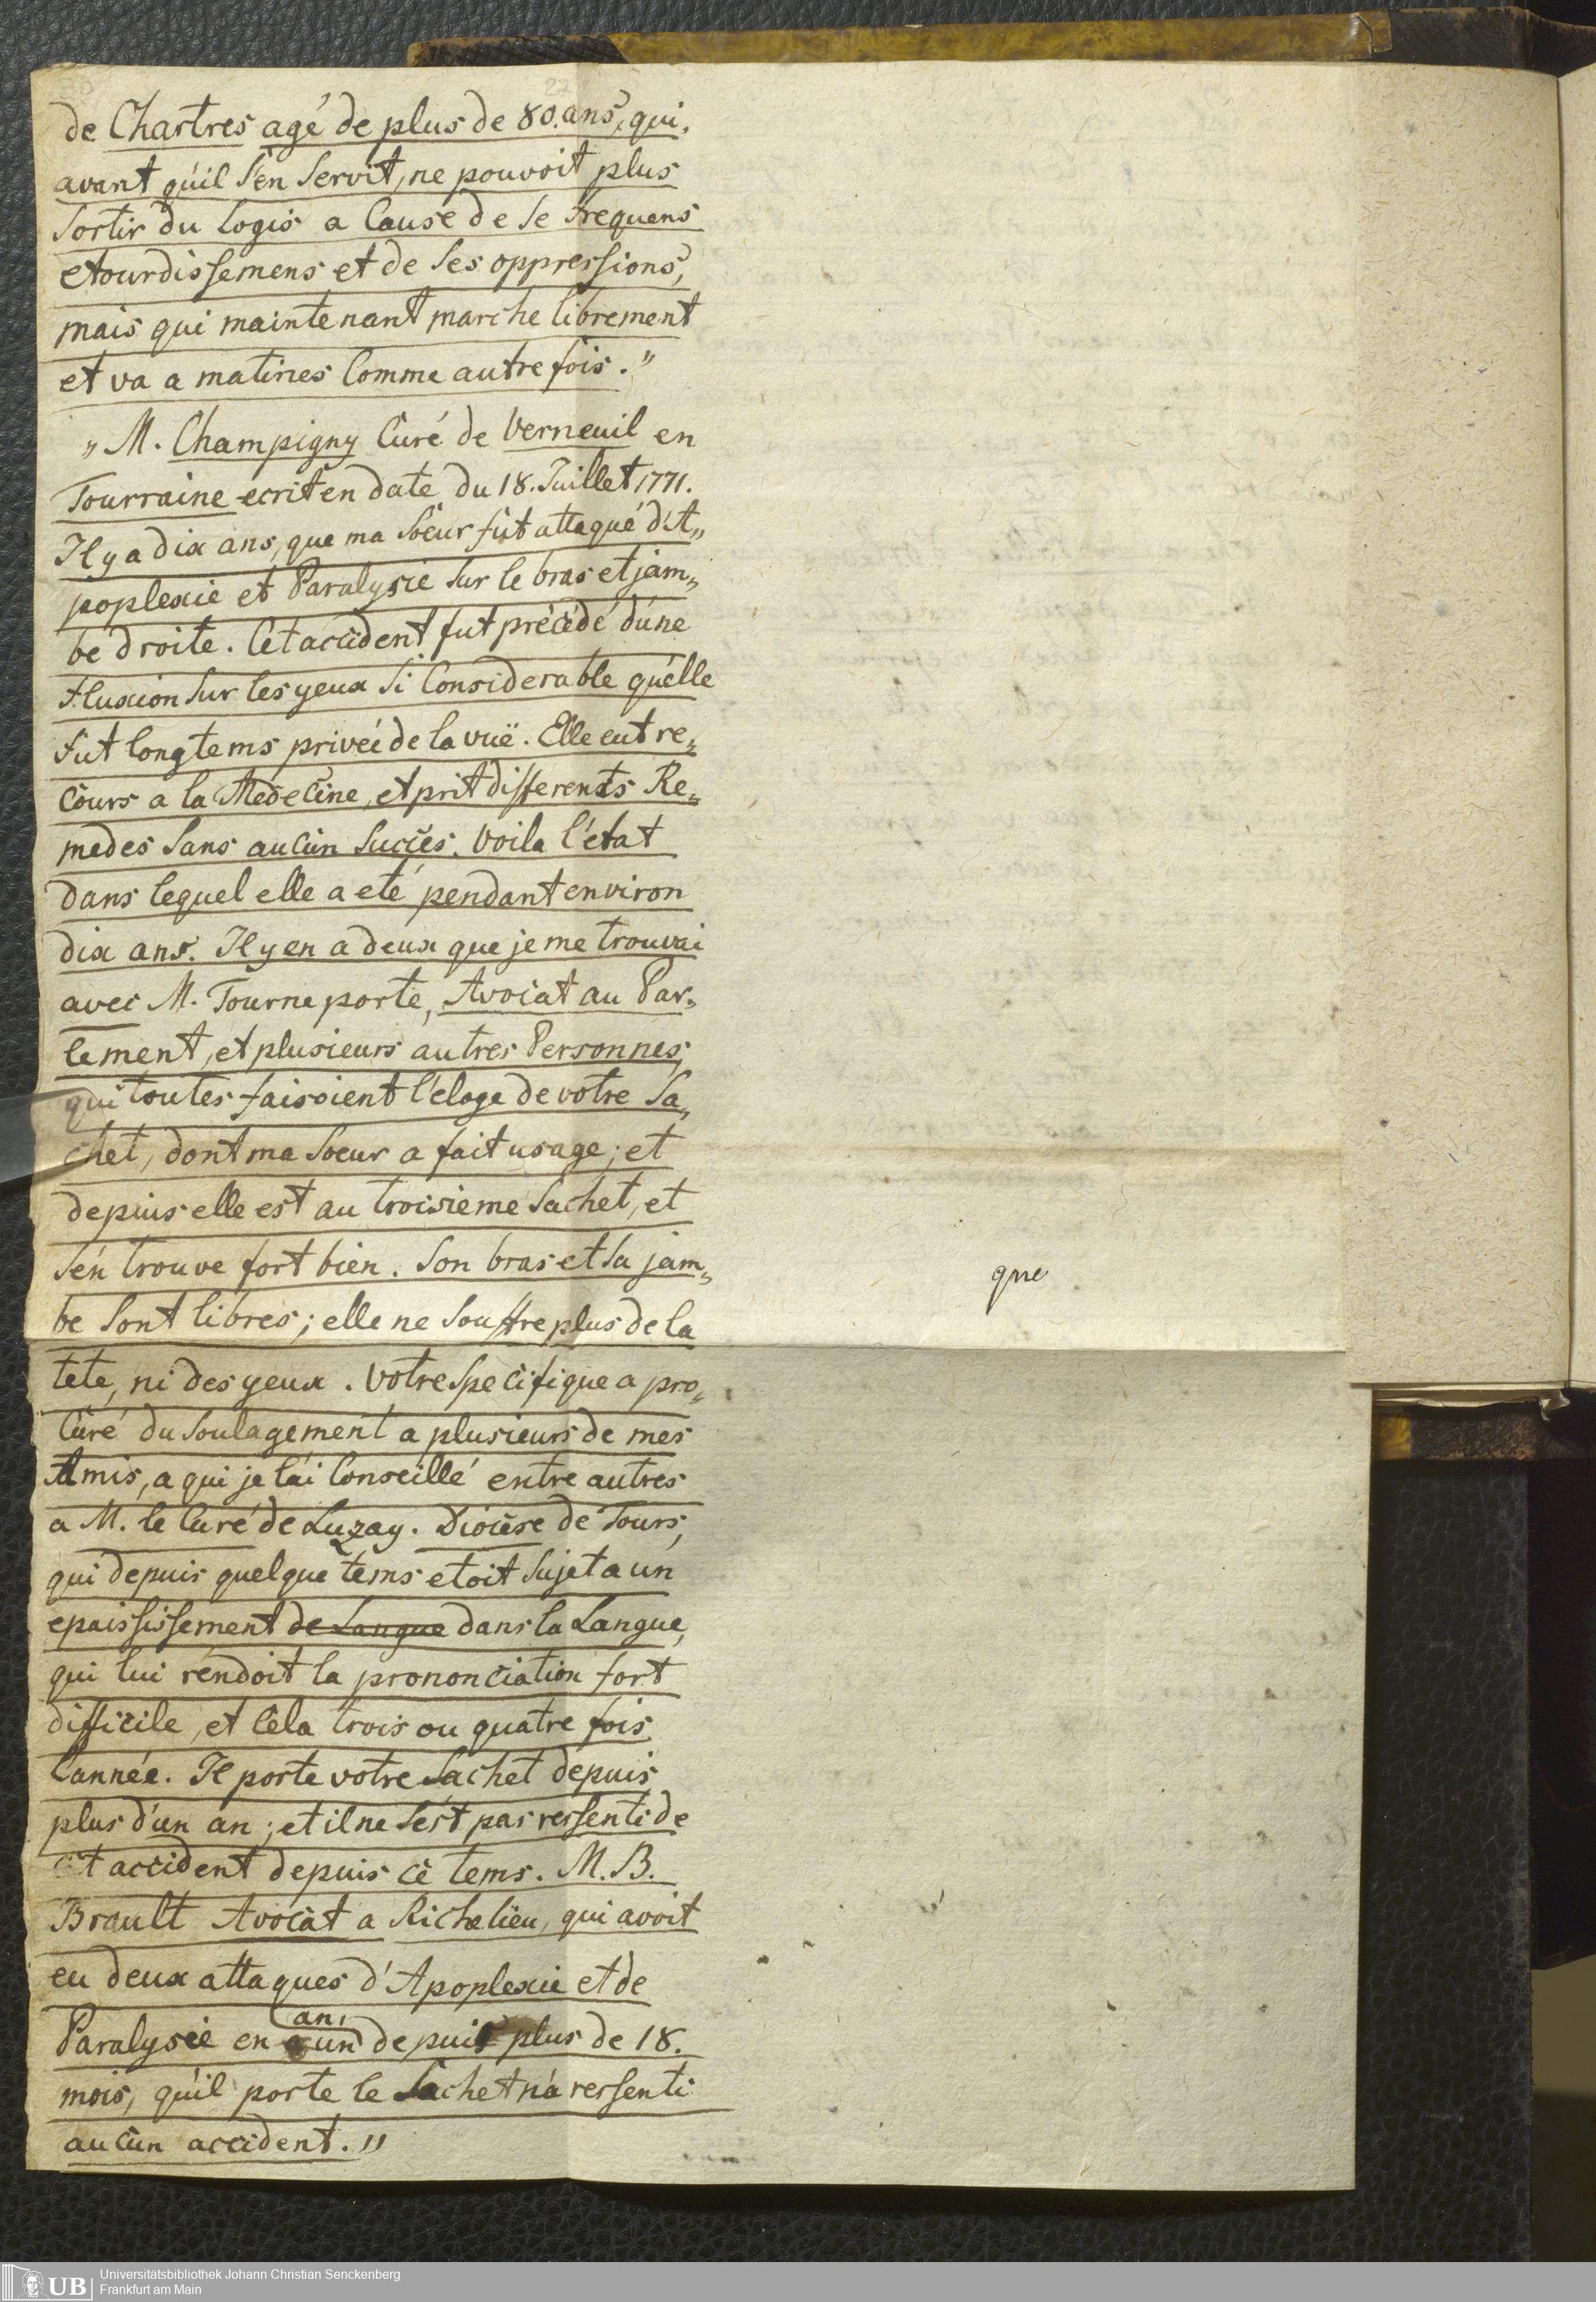 de Chartres agé de plus de 80. ans, qui,
avant qu'il s'en servit, ne pouvoit plus
sortir du Logis a Cause de se frequens
etourdissemens et de ses oppressions,
mais qui maintenant marche librement
et va a matines Comme autre fois."
„M. Champigny Curé de Verneuil en
Tourraine ecrit en date du 18. Juillet 1771.
Il y a dix ans, que ma Soeur fut attaqué d'A„
poplexie et Paralysie sur le bras et jam„
be droite. Cet accident fut précédé d'une
fluxion sur les yeux si Considerable qu'elle
fut longtems privée de la vuë. Elle eut re„
cours a la Medecine, et prit differents Re„
medes sans aucun succès. Voila l'etat
dans lequel elle a eté pendant environ
dix ans. Il y en a deux que je me trouvai
avec M. Tourneporte, Avocat au Par„
lement, et plusieurs autres Personnes,
qui toutes faisoient l'eloge de votre Sa„
chet, dont ma Soeur a fait usage; et
depuis elle est au troisieme Sachet, et
s'en trouve fort bien. Son bras et sa jam„
be sont libres; elle ne souffre plus de la
tete, ni des yeux. Votre Specifique a pro„
curé du soulagement a plusieurs de mes
Amis, a qui je l'ai Conseillé entre autres
a M. le Curé de Luzay. Diocèse de Tours,
qui depuis quelque tems etoit sujet a un
epaississement de Langue dans la Langue,
qui lui rendoit la prononciation fort
difficile, et Cela trois ou quatre fois
l'année. Il porte votre Sachet depuis
plus d'un an; et il ne s'est pas ressenti de
cet accident depuis ce tems. M. B.
Brault Avocat a Richelieu, qui avoit
eu deux attaques d'Apoplexie et de
an,
Paralysie en un depuis plus de 18.
mois, qu'il porte le Sachet n'a ressenti
aucun accident."
que
UB
Universitätsbibliothek Johann Christian Senckenberg
Frankfurt am Main